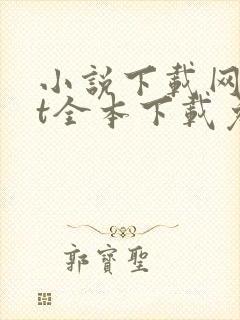 小說下載网
t全本下載
郭寶聖